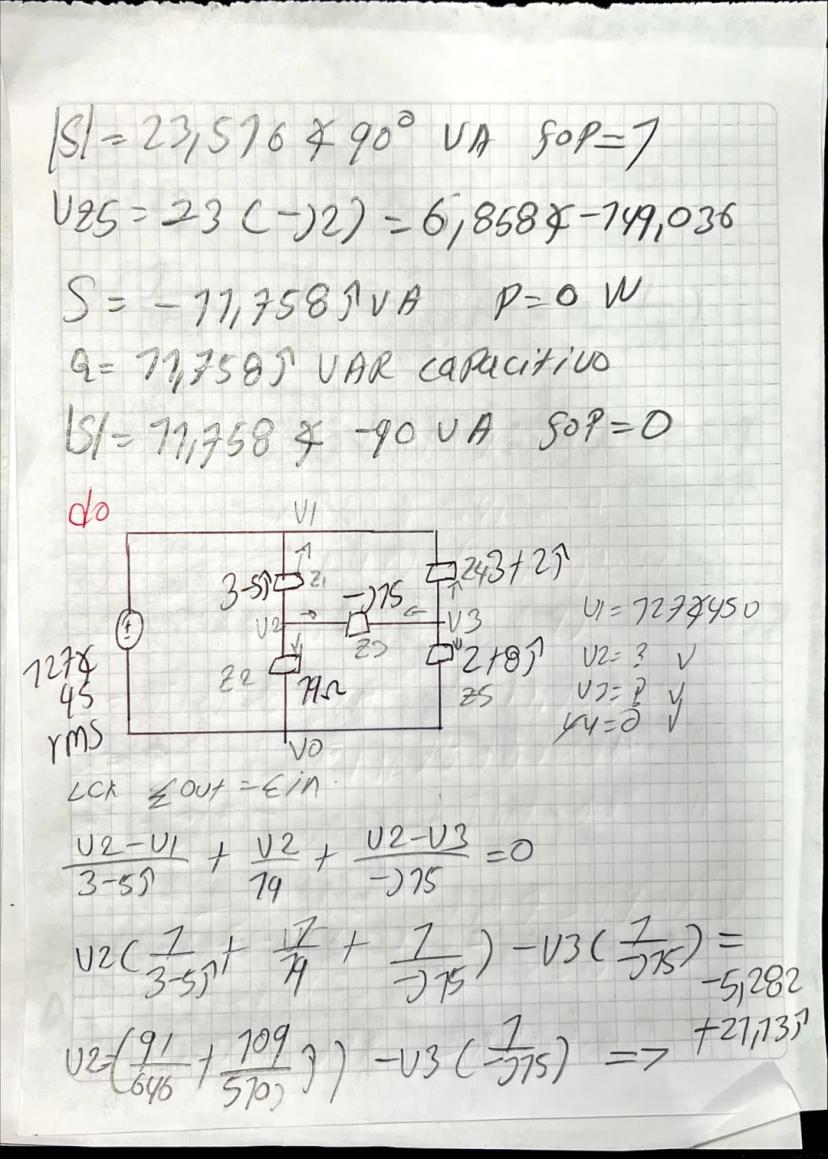 |S| = 23,516 ∡ 90° VA fdp=1
VZ5 = I3 (-j2) = 6,858∡-149,036
S = -11,758j VA P=0 W
Q= 11,758j VAR capacitivo
|S| = 11,758 ∡ -90 VA fdp=0
do
V1
3-5j Z1
-j15
Z4 3+2j
V2
Z3
V3
127∡
45
rms
Z2
19Ω
2+8j
Z5
V0
V1=127∡45°
V2=? V
V3=? V
V4=0 V
LCK ΣOut = Σin.
V2-V1/3-5j + V2/19 + V2-V3/-j15 = 0
V2(1/3-5j + 1/19 + 1/-j15) - V3(1/-j15) = -5,282 +21,13j
V2(91/646 + 109/510 j) - V3(1/-j15) =>